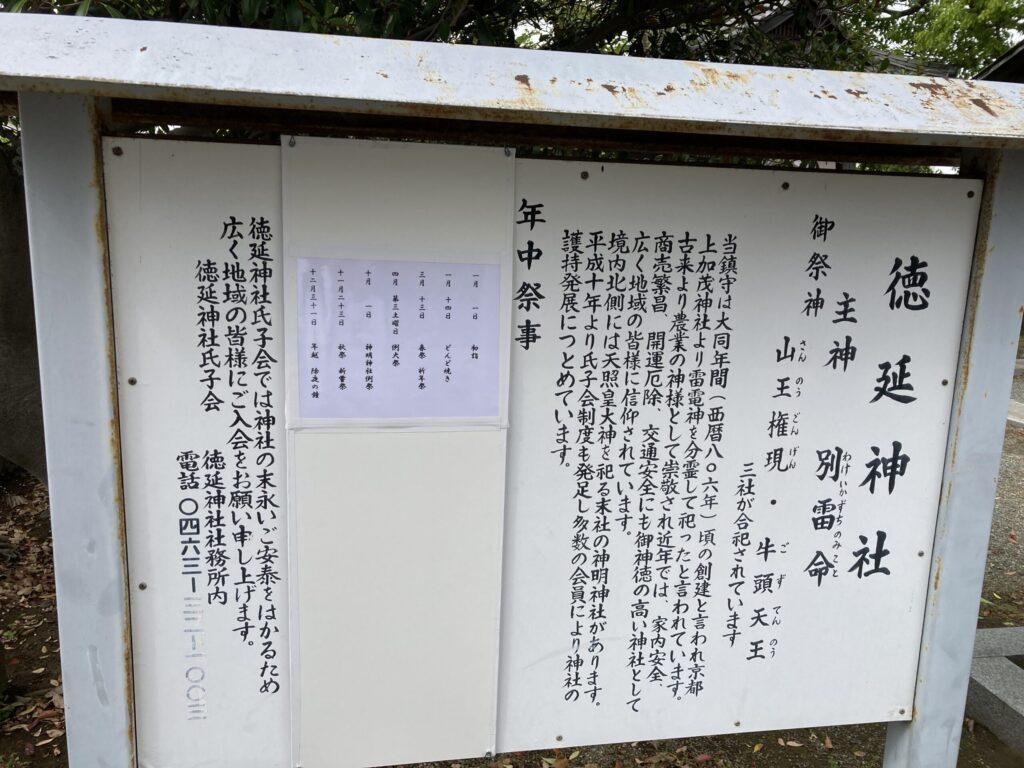 徳延神社
御祭神
主神 別雷命
わけいかずちのみこと
山王権現・牛頭天王
さんのうごんげん
ごずてんのう
三社が合祀されています
当鎮守は大同年間(西暦八〇六年)頃の創建と言われ京都
上加茂神社より雷電神を分霊して祀ったと言われています。
古来より農業の神様として崇敬され近年では、家内安全、
商売繁昌 開運厄除、交通安全にも御神徳の高い神社として
広く地域の皆様に信仰されています。
境内北側には天照皇大神を祀る末社の神明神社があります。
平成十年より氏子会制度も発足し多数の会員により神社の
護持発展につとめています。
年中祭事
一月 一日 初詣
一月 十四日 どんど焼き
三月 十三日 春祭 祈年祭
四月 第三土曜日 例大祭
十月 一日 神明神社例祭
十一月二十三日 秋祭 新嘗祭
十二月三十一日 年越 除夜の鐘
徳延神社氏子会では神社の末永いご安泰をはかるため
広く地域の皆様にご入会をお願い申し上げます。
徳延神社氏子会 徳延神社社務所内
電話 〇四六三ー